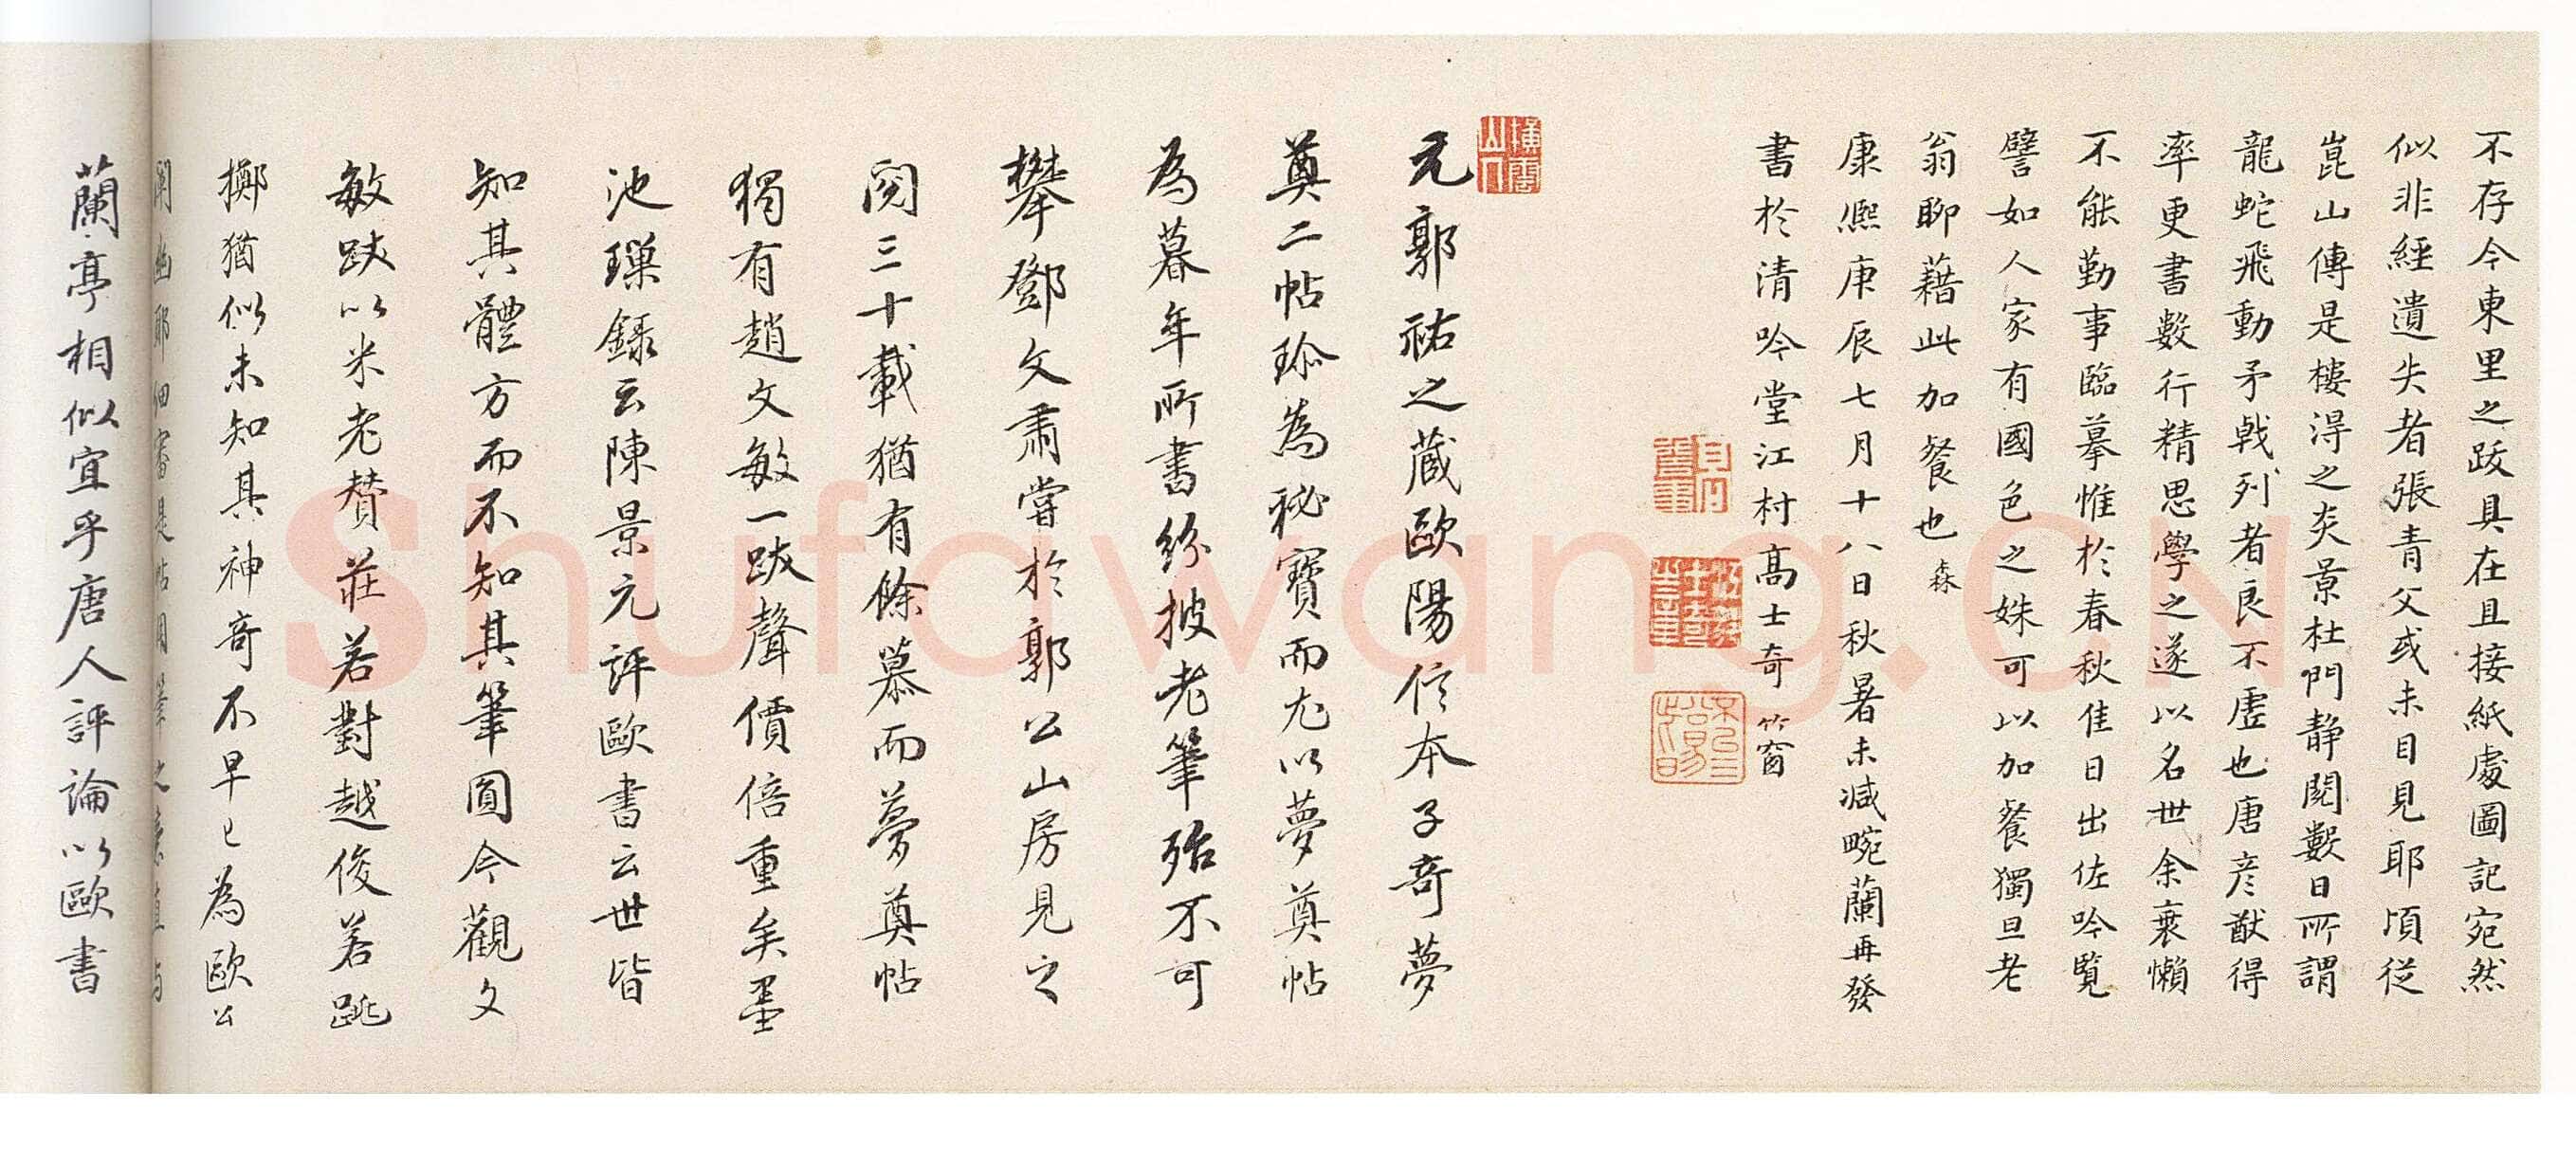 不存今東里之跋具在且接紙處圖記宛然
似非經遺失者張青父或未目見耶頃從
崑山傳是樓得之炎景杜門靜閱數日所謂
龍蛇飛動矛戟列者良不虛也唐彥猷得
率更書數行精思學之遂以名世余衰懶
不能勤事臨摹惟於春秋佳日出佐吟覽
譬如人家有國色之姝可以加餐獨旦老
翁聊藉此加餐也 森
康熙庚辰七月十八日秋暑未減畹蘭再發
書於清吟堂江村高士奇 竹窗
橫雲山人
元郭祐之蔵歐陽信本子奇夢
奠二帖珎為祕寶而尤以夢奠帖
為暮年所書紛披老筆殆不可
攀鄧文肅嘗於郭公山房見之
閱三十載猶有餘慕而夢奠帖
獨有趙文敏一跋聲價倍重矣墨
池璅錄云陳景元評歐書云世皆
知其體方而不知其筆圓今觀文
敏跋以米老賛莊若對越俊若跳
擲猶似未知其神奇不早已為歐公
闡幽耶細審是帖用筆之意直与
蘭亭相似宜乎唐人評論以歐書
Shufawang.CN